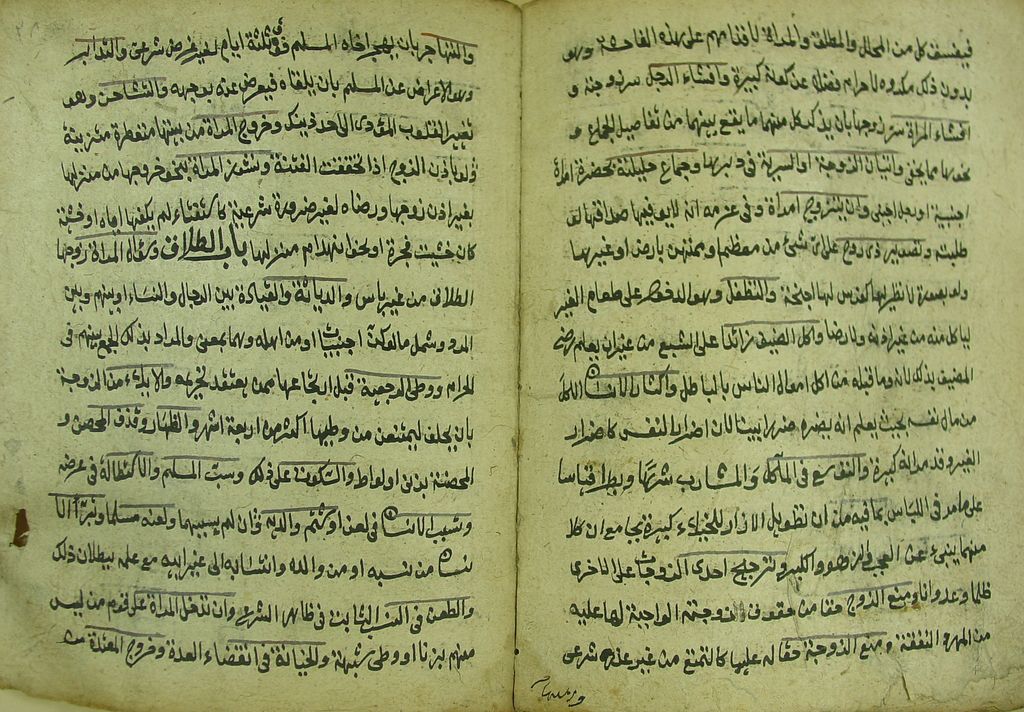 فيفسق كل من المحلل والمطلقة والمرأة لاقدامهم على هذه الفاحشة وهو
بدون ذلك مكروه لا حرام فضلا عن كونه كبيرة وافشاء الرجل سر زوجته و
افشاء المرأة سر زوجها بان يذكر كل منهما ما يقع بينهما من تفاصيل الجماع و
نحوها مما يخفى واتيان الزوجة او السرية في دبرها وجماع حليلته بحضرة امرأة
اجنبية او رجل اجنبي وان يتزوج امرأة وفي عزمه انه لا يوفيها صداقها لو
طلبته وتصوير ذي روح على اي شيء من معظم او ممتهن بارض او غيرها
ولو بصورة لا نظير لها كفرس لها اجنحة والتطفل وهو الدخول على طعام الغير
لياكل منه من غير اذنه ولا رضا واكل الضيف زائدا على الشبع من غير ان يعلم رضى
المضيف بذلك لانه وما قبله من اكل اموال الناس بالباطل واكثار الانسان الاكل
من مال نفسه بحيث يعلم انه يضره ضررا بينا لان اضرار النفس كاضرار
الغير وقد مر انه كبيرة والتوسع في المآكل والمشارب شرها وبطرا قياسا
على ما مر في اللباس بما فيه من ان تطويل الازار للخيلاء كبيرة بجامع ان كلا
منهما ينبئ عن العجب والزهو والكبر وترجيح احدى الزوجات على الاخرى
ظلما وعدوانا ومنع الزوج حقا من حقوق زوجته الواجبة لها عليه
من المهر والنفقة ومنع الزوجة حقا له عليها كالتمتع من غير عذر شرعي
والتهاجر بان يهجر اخاه المسلم فوق ثلثة ايام لغير غرض شرعي والتدابر
وهو الاعراض عن المسلم بان يلقاه فيعرض عنه بوجهه والتشاحن وهو
تغير القلوب المؤدي الى احد ذينك وخروج المرأة من بيتها متعطرة متزينة
ولو باذن الزوج اذا تحققت الفتنة ونشوز المرأة بنحو خروجها من منزلها
بغير اذن زوجها ورضاه لغير ضرورة شرعية كاستفتاء لم يكفها اياه او خشية
كان خشيت فجرة او نحو انهدام منزلها باب الطلاق وسؤال المرأة زوجها
الطلاق من غير باس والدياثة والقيادة بين الرجال والنساء او بينهم وبين
المرد ويشمل ما لو كن اجنبيات او من اهله وهما بمعنى والمراد بذلك الجمع بينهم في
الحرام ووطئ الرجعية قبل ارتجاعها ممن يعتقد تحريمه والايلاء من الزوجة
بان يحلف ليمتنعن من وطيها اكثر من اربعة اشهر والظهار وقذف المحصن و
المحصنة بزنى او لواط والسكوت على ذلك وسب المسلم والاستطالة في عرضه
وتسبب الانسان في لعن او شتم والديه وان لم يسبهما ولعنه مسلما وتبرأ الا
نسان من نسبه او من والده وانتسابه الى غير ابيه مع علمه ببطلان ذلك
والطعن في النسب الثابت في ظاهر الشرع وان تدخل المرأة على قوم من ليس
منهم لزنا او وطئ شبهة والخيانة في انقضاء العدة وخروج المعتدة من